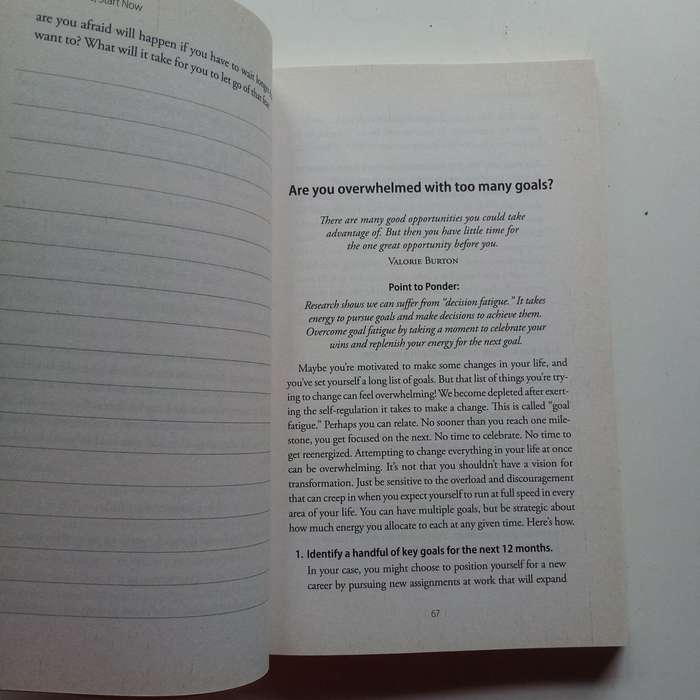 Start Now
are you afraid will happen if you have to wait longer
want to? What will it take for you to let go of that fear
Are you overwhelmed with too many goals?
There are many good opportunities you could take
advantage of. But then you have little time for
the one great opportunity before you.
Valorie Burton
Point to Ponder:
Research shows we can suffer from "decision fatigue." It takes
energy to pursue goals and make decisions to achieve them.
Overcome goal fatigue by taking a moment to celebrate your
wins and replenish your energy for the next goal.
Maybe you're motivated to make some changes in your life, and
you've set yourself a long list of goals. But that list of things you're try-
ing to change can feel overwhelming! We become depleted after exert-
ing the self-regulation it takes to make a change. This is called "goal
fatigue." Perhaps you can relate. No sooner than you reach one mile-
stone, you get focused on the next. No time to celebrate. No time to
get reenergized. Attempting to change everything in your life at once
can be overwhelming. It's not that you shouldn't have a vision for
transformation. Just be sensitive to the overload and discouragement
that can creep in when you expect yourself to run at full speed in every
area of your life. You can have multiple goals, but be strategic about
how much energy you allocate to each at any given time. Here's how.
1. Identify a handful of key goals for the next 12 months.
In your case, you might choose to position yourself for a new
career by pursuing new assignments at work that will expand
67